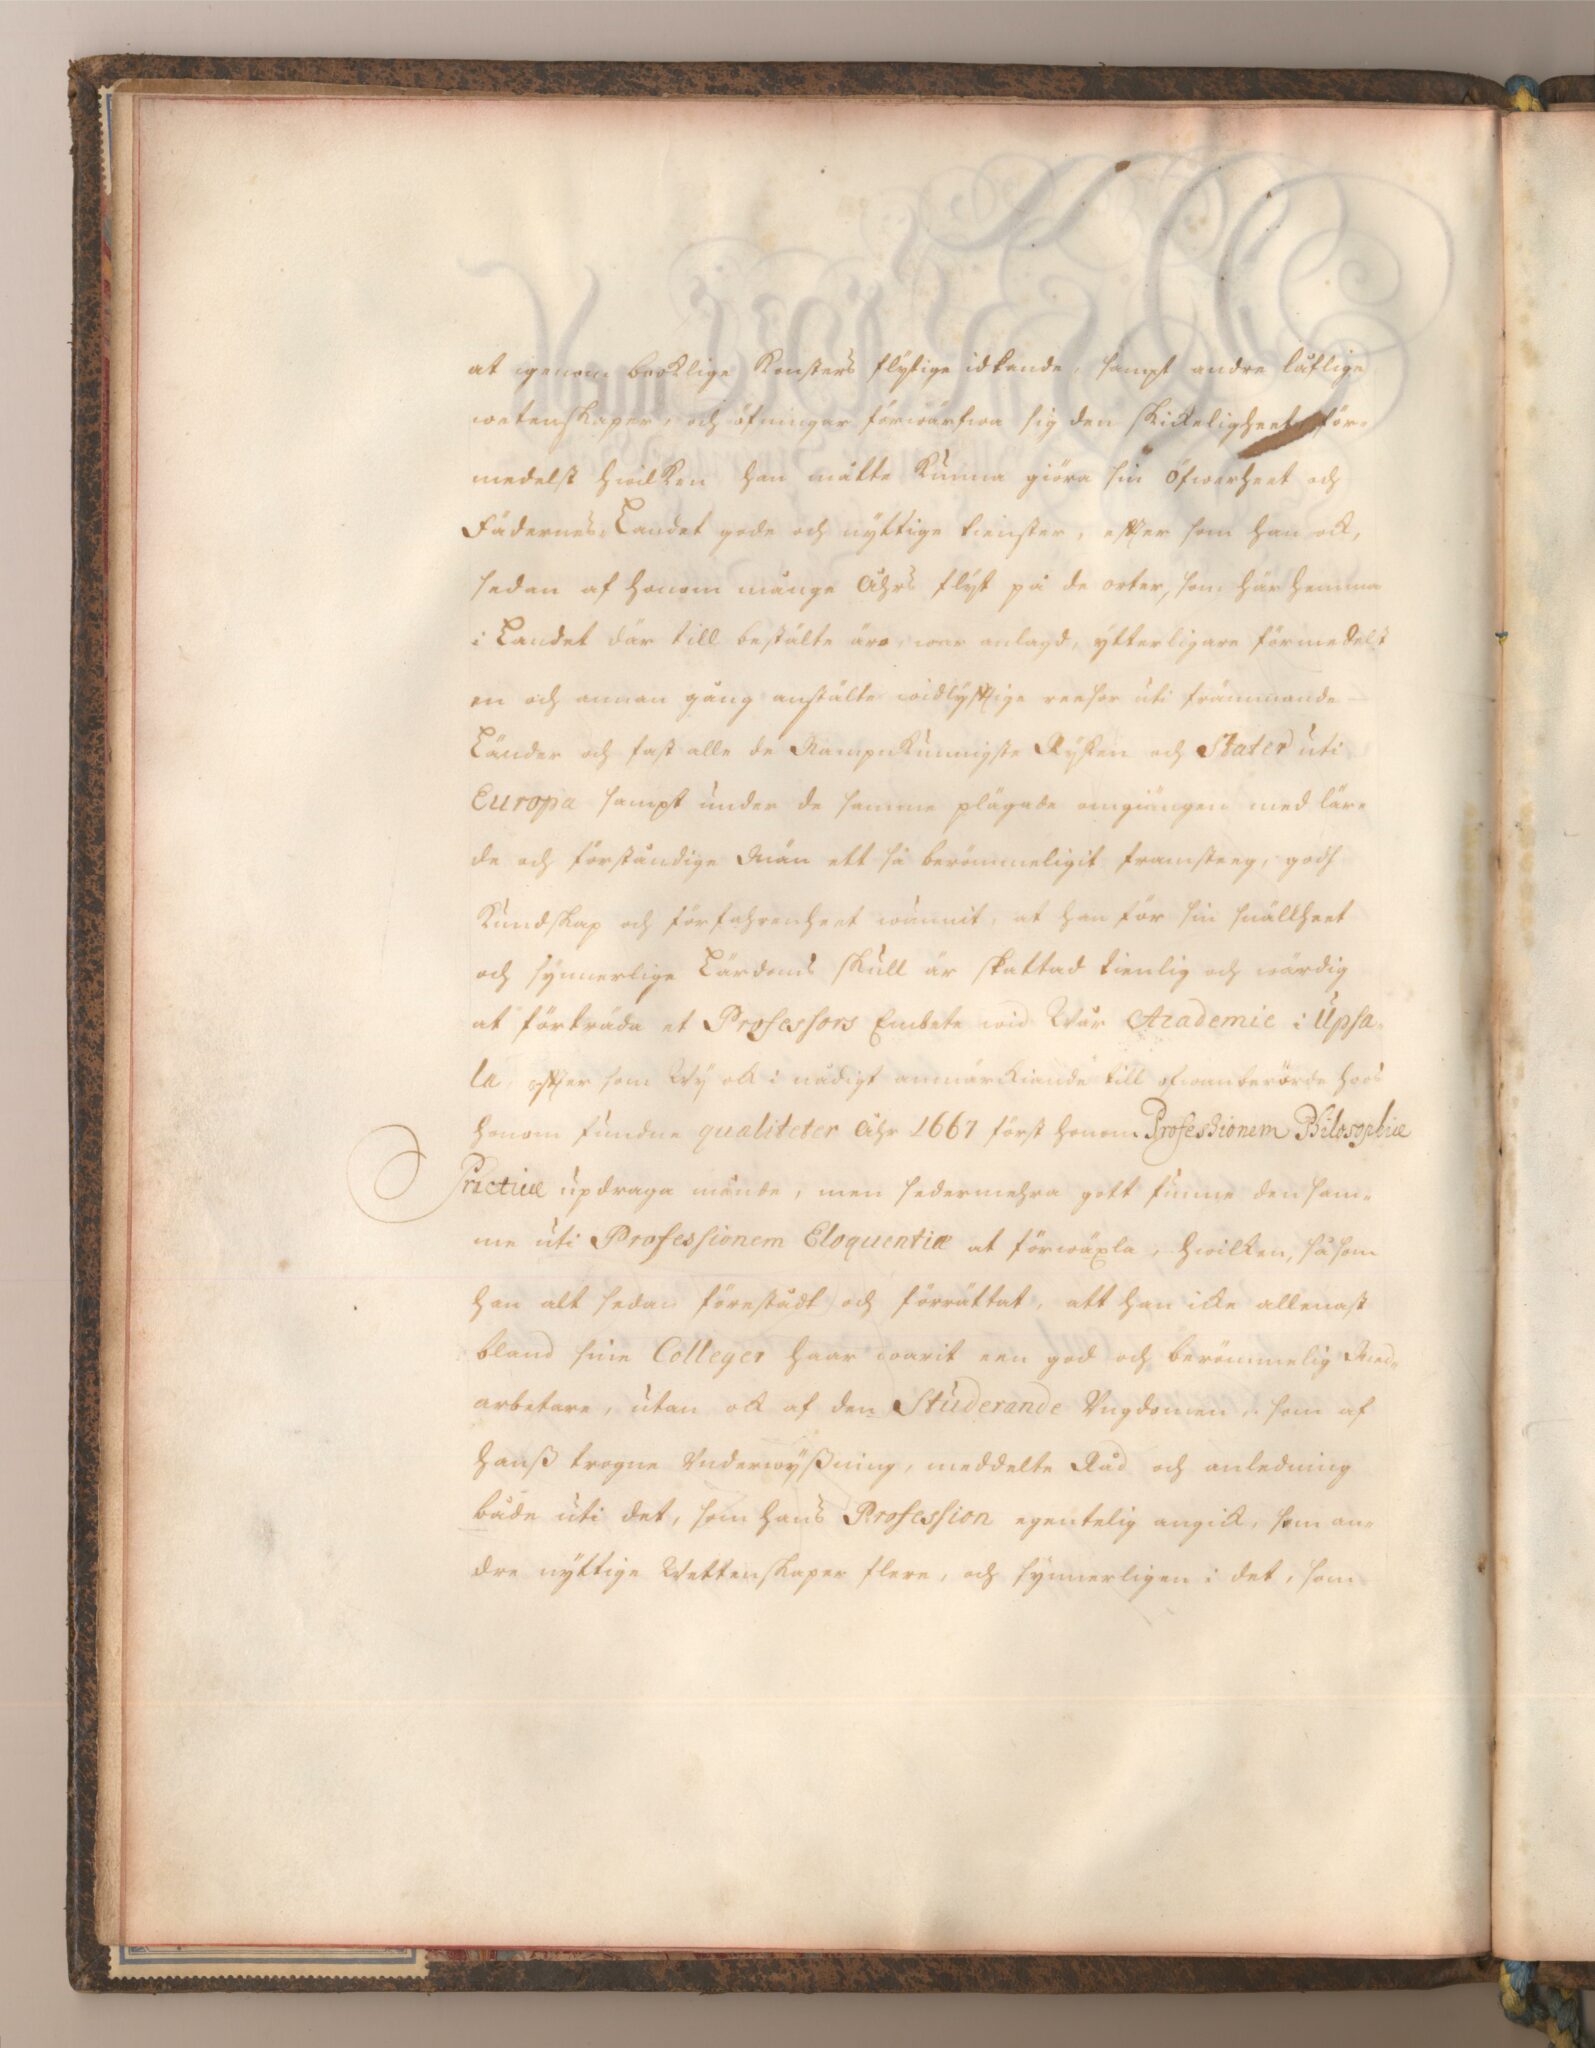 at igenom booklige Konsters flÿtige idkande, sampt andre låflige
wetenskaper, och öfningar förwärfwa sig den skickeligheet, för-
medelst hwilken han måtte kunna giöra sin Öfwerheet och
Fädernes Landet gode och nÿttige tienster, efter som han ock,
sedan af honom många åhrs flÿt på de orter, som här hemma
i Landet där till bestälte äro, war anlagd, ÿtterligare förmedelst
en och annan gång anstälte widlÿftige reesor uti främmande
Länder och fast alle de Nampnkunnigste Rÿken och Stater uti
Europa sampt under de samme plägade omgiängen med lär-
de och förståndige Män ett så berömmeligit framsteeg, godh
Kundskap och förfahrenheet wunnit, at han för sin snällheet
och sÿnnerlige Lärdoms skull är skattad tienlig och wärdig
at förträda et Professors Embete wid Wår Academie i Upsa-
la, efter som Wÿ ock i nådigt anmärckiande till ofwanberörde hoos
honom fundne qualiteter åhr 1667 först honom Professionem Philosophiæ
Practicæ updraga månde, men sedermehra gott funne den sam-
me uti Professionem Eloquentiæ at förwäxla, hwilken, så som
han alt sedan förestådt och förrättat, att han icke allenast
bland sine Colleger haar warit een god och berömmelig Med-
arbetare, utan ock af den Studerande Ungdomen, som af
hanß trogne Underwÿßning, meddelte Råd och anledning
både uti det, som hans Profession egentelig angick, som an-
dre nÿttige Wettenskaper flere, och sÿnnerligen i det, som